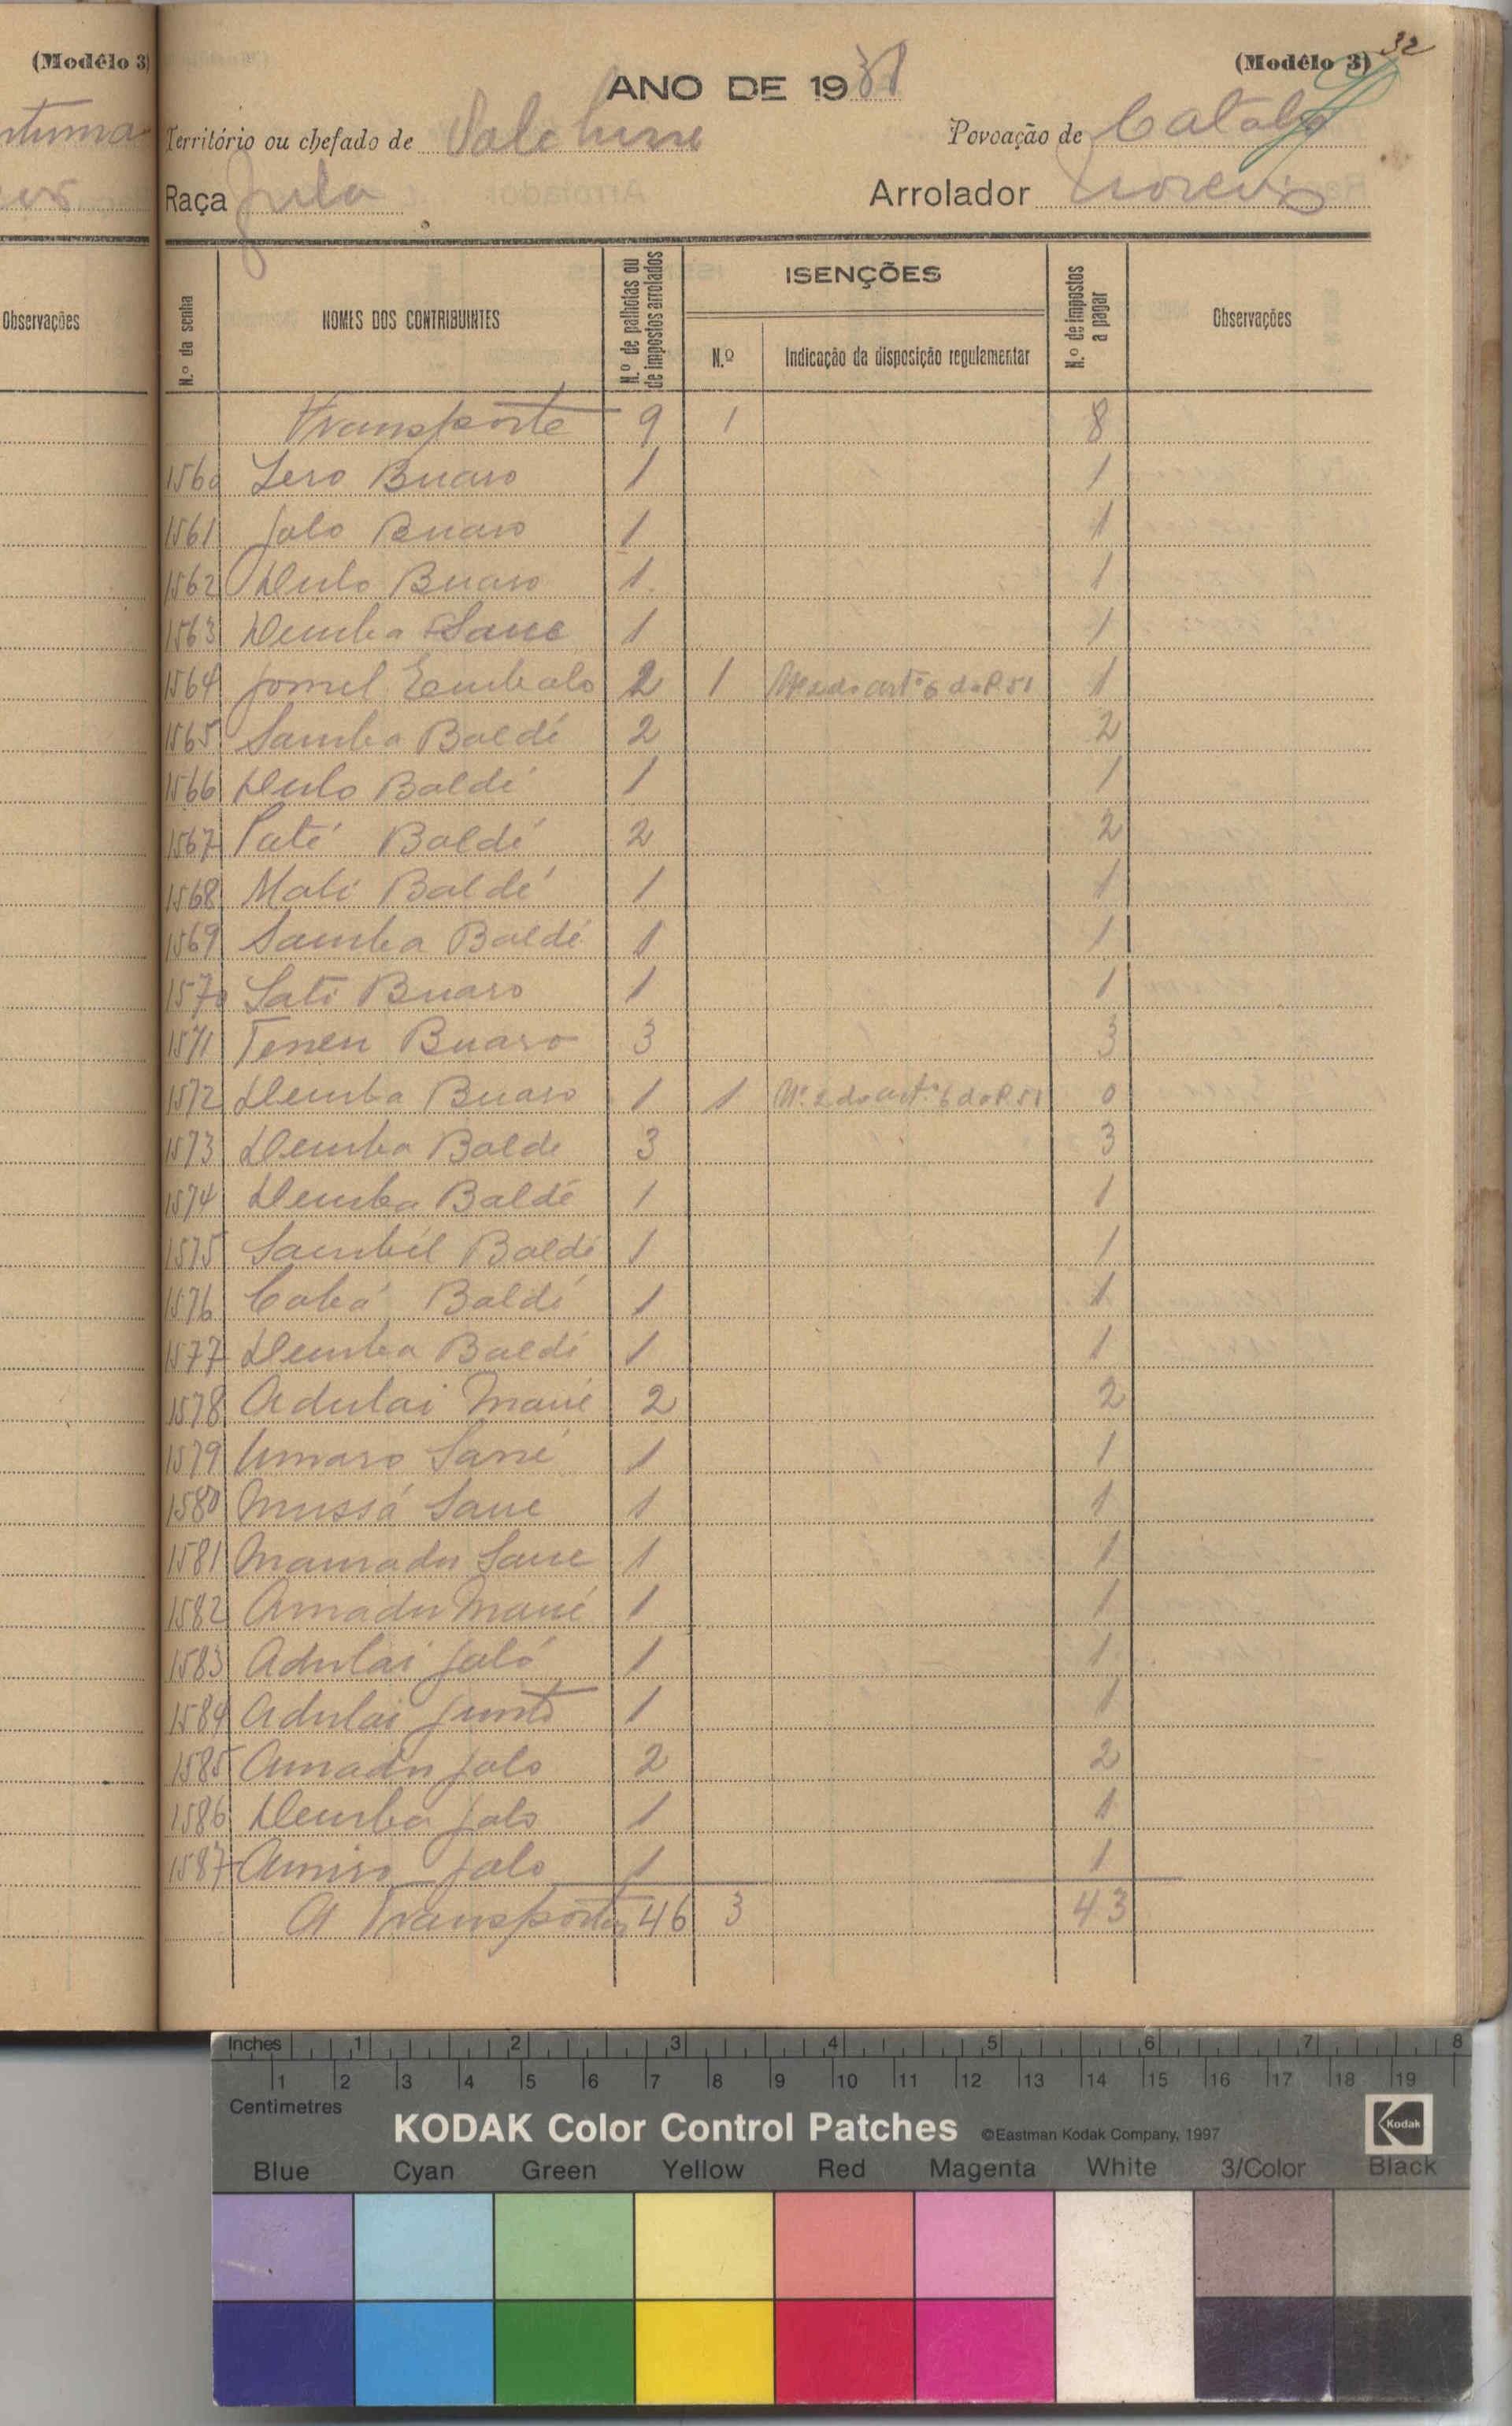 (Modêlo 3)
Observações
32
(Modêlo 3)
ANO DE 1931
Território ou chefado de
Povoação de
Raça Fula
Arrolador
N.º da senha
NOMES DOS CONTRIBUINTES
N.º de palhotas ou de impostos arrolados
ISENÇÕES
N.º
Indicação da disposição regulamentar
N.º de impostos a pagar
Observações
Transporte 9 1 8
1560 Sero Buaro 1 1
1561 Jalo Buaro 1 1
1562 Dulo Buaro 1 1
1563 Demba Sane 1 1
1564 Jomel Embalo 2 1 Nº 2 do artº 6 do R.51 1
1565 Samba Baldé 2 2
1566 Dulo Baldé 1 1
1567 Paté Baldé 2 2
1568 Mali Baldé 1 1
1569 Samba Baldé 1 1
1570 Sati Buaro 1 1
1571 Tenen Buaro 3 3
1572 Demba Buaro 1 1 Nº 2 do artº 6 do R.51 0
1573 Demba Balde 3 3
1574 Demba Baldé 1 1
1575 Sambél Baldé 1 1
1576 Cobá Baldé 1 1
1577 Demba Baldé 1 1
1578 Adulai Mané 2 2
1579 Umaro Sané 1 1
1580 Mussá Sane 1 1
1581 Mamadu Sane 1 1
1582 Amadu Mané 1 1
1583 Adulai Jaló 1 1
1584 Adulai Junto 1 1
1585 Amadu Jalo 2 2
1586 Demba Jalo 1 1
1587 Amiro Jalo 1 1
A Transportar 46 3 43
Inches 1 2 3 4 5 6 7 8
1 2 3 4 5 6 7 8 9 10 11 12 13 14 15 16 17 18 19
Centimetres
KODAK Color Control Patches ©Eastman Kodak Company, 1997 Kodak
Blue Cyan Green Yellow Red Magenta White 3/Color Black